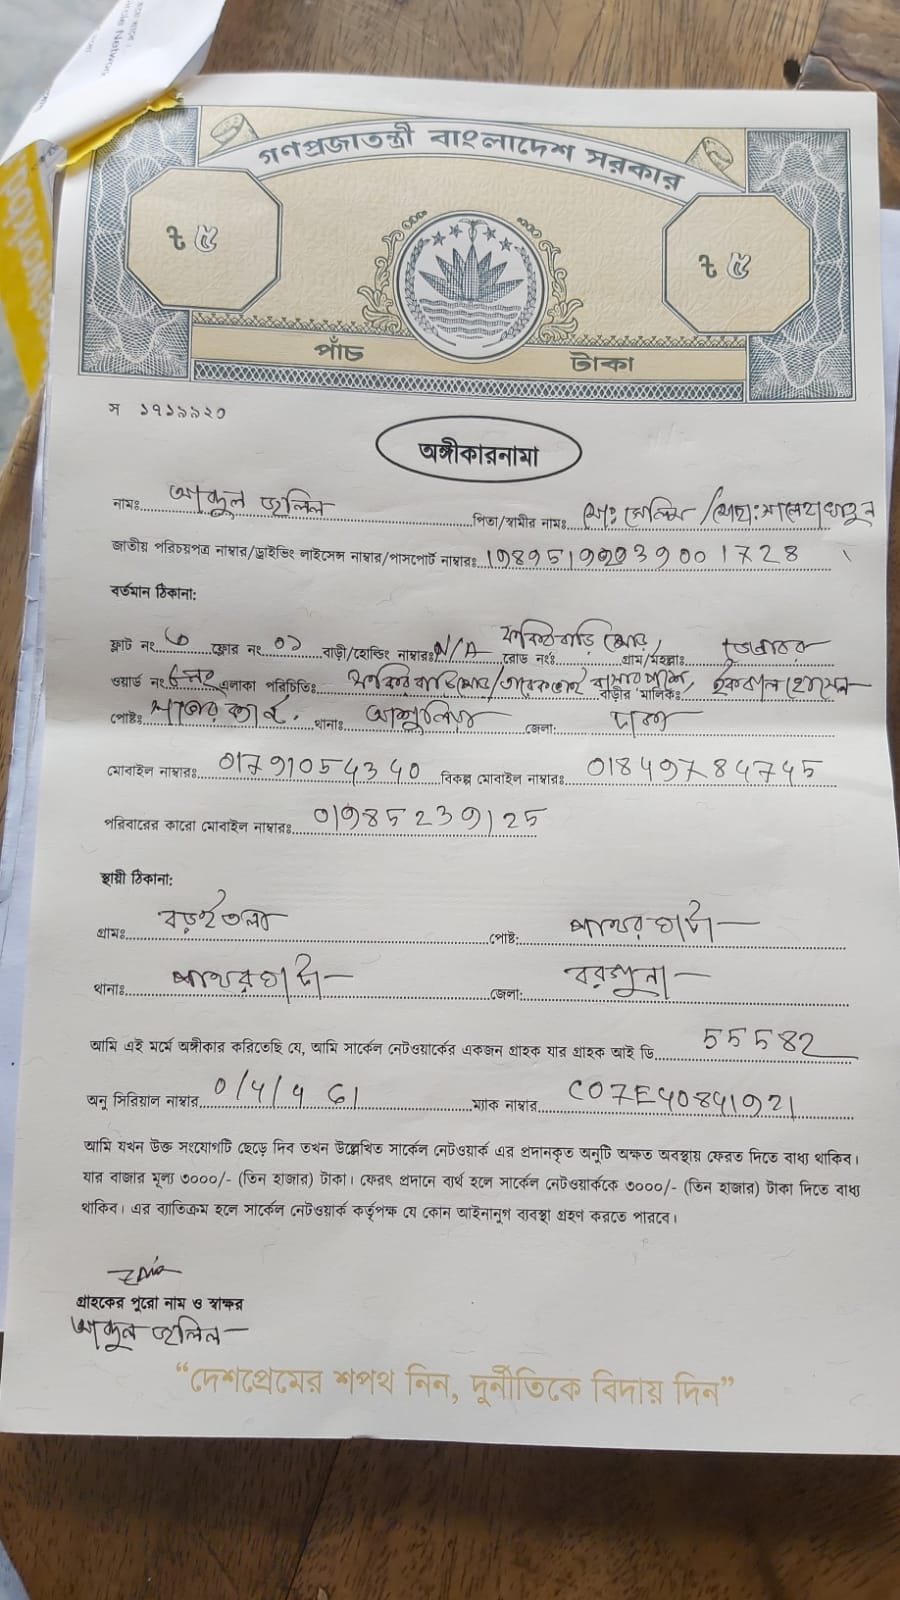 গণপ্রজাতন্ত্রী বাংলাদেশ সরকার
৳ ৫ ৳ ৫
পাঁচ টাকা
স ১৭১৯৯২০
অঙ্গীকারনামা
নামঃ আব্দুল জলিল পিতা/স্বামীর নামঃ মোঃ সেলিম /মোছাঃ সালেহা খাতুন
জাতীয় পরিচয়পত্র নাম্বার/ড্রাইভিং লাইসেন্স নাম্বার/পাসপোর্ট নাম্বারঃ
বর্তমান ঠিকানা:
ফ্লাট নং ৬ ফ্লোর নং ০১ বাড়ী/হোল্ডিং নাম্বারঃ N/A রোড নংঃ ফকিরবাড়ি মোড়, গ্রাম/মহল্লাঃ
ওয়ার্ড নং এলাকা পরিচিতিঃ ফকির বাড়ি মোড়/তারেক বাসার পাশে, বাড়ীর মালিকঃ ইকবাল হোসেন
পোষ্টঃ থানাঃ আশুলিয়া জেলা: ঢাকা
মোবাইল নাম্বারঃ 01791054340 বিকল্প মোবাইল নাম্বারঃ 01849784745
পরিবারের কারো মোবাইল নাম্বারঃ 01985239125
স্থায়ী ঠিকানা:
গ্রামঃ বড়ইতলা পোষ্ট: পাথরঘাটা
থানাঃ পাথরঘাটা জেলা: বরগুনা
আমি এই মর্মে অঙ্গীকার করিতেছি যে, আমি সার্কেল নেটওয়ার্কের একজন গ্রাহক যার গ্রাহক আই ডি 55582
অনু সিরিয়াল নাম্বার ম্যাক নাম্বার C07E40841921
আমি যখন উক্ত সংযোগটি ছেড়ে দিব তখন উল্লেখিত সার্কেল নেটওয়ার্ক এর প্রদানকৃত অনুটি অক্ষত অবস্থায় ফেরত দিতে বাধ্য থাকিব।
যার বাজার মূল্য ৩০০০/- (তিন হাজার) টাকা। ফেরৎ প্রদানে ব্যর্থ হলে সার্কেল নেটওয়ার্ককে ৩০০০/- (তিন হাজার) টাকা দিতে বাধ্য
থাকিব। এর ব্যতিক্রম হলে সার্কেল নেটওয়ার্ক কর্তৃপক্ষ যে কোন আইনানুগ ব্যবস্থা গ্রহণ করতে পারবে।
গ্রাহকের পুরো নাম ও স্বাক্ষর
আব্দুল জলিল
“দেশপ্রেমের শপথ নিন, দুর্নীতিকে বিদায় দিন”